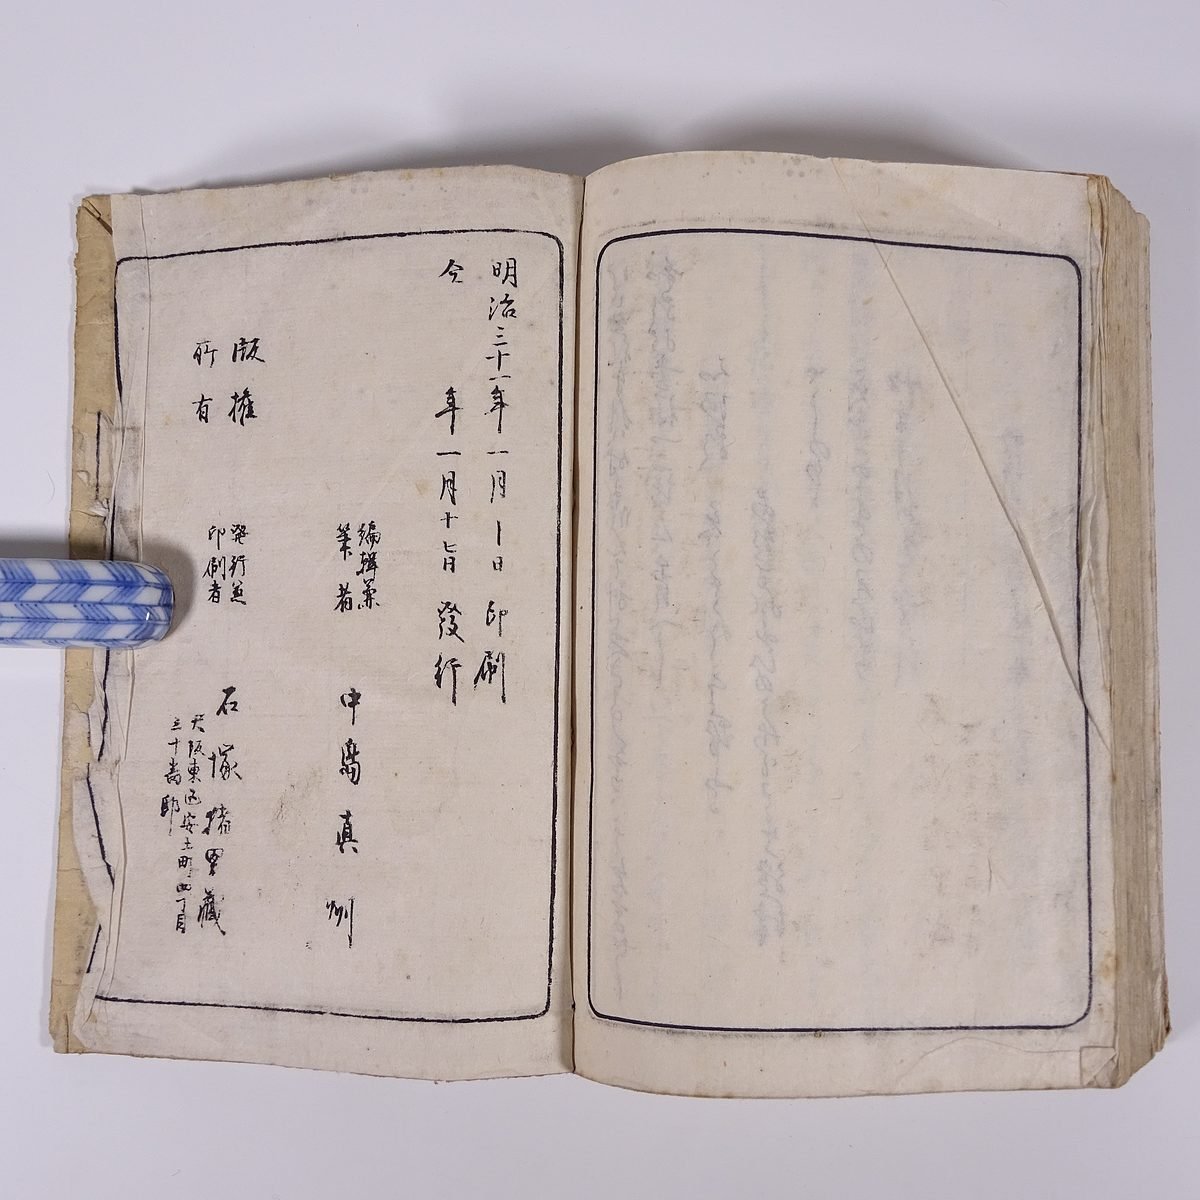 明治三十一年一月十日印刷
仝年一月十七日發行
編輯兼
筆者
中島真州
版權
所有
発行兼
印刷者
石塚猪男蔵
大阪東区安土町四丁目
三十番邸